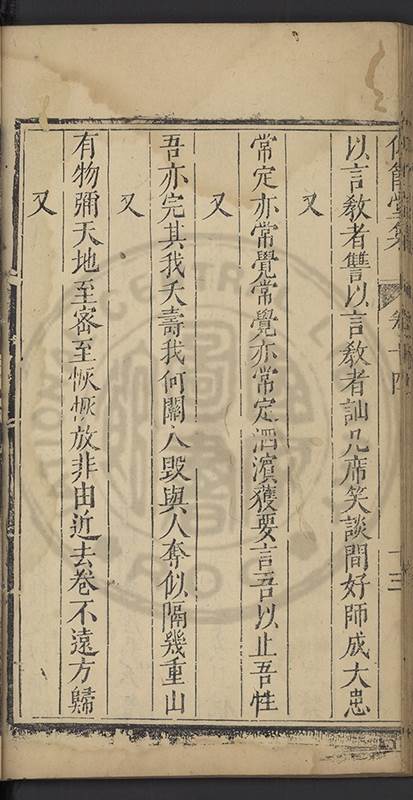 以言敎者讐以言敎者訕几席笑談間好師成大忠
又
常定亦常覺常覺亦常定洒濵獲要言吾以止吾性
又
吾亦完其我夭壽我何關人毀與人奪似隔幾重山
又
有物彌天地至密至恢恢放非由近去卷不遠方歸
又